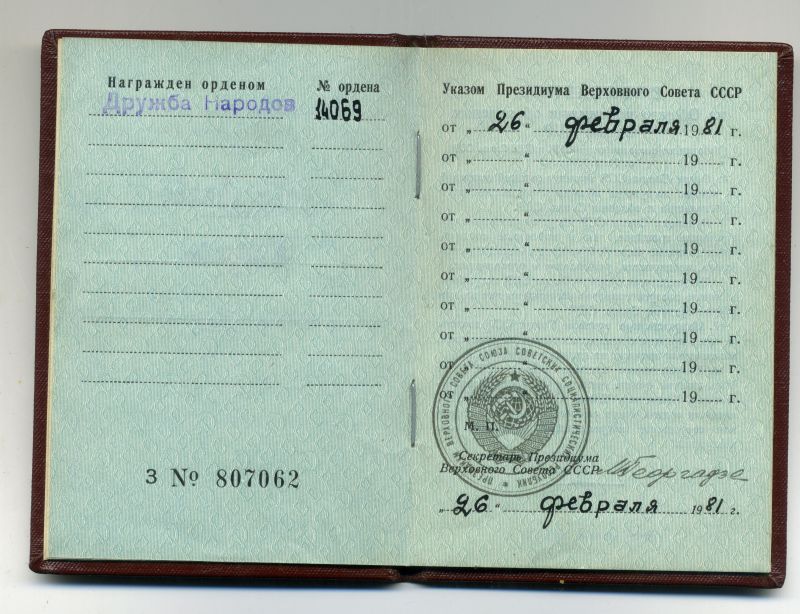 Награжден орденом № ордена
Дружба Народов 14069
З № 807062
Указом Президиума Верховного Совета СССР
от „ 26 “ февраля 1981 г.
от „ “ 19 г.
от „ “ 19 г.
от „ “ 19 г.
от „ “ 19 г.
от „ “ 19 г.
от „ “ 19 г.
от „ “ 19 г.
от „ “ 19 г.
от „ “ 19 г.
ПРЕЗИДИУМ ВЕРХОВНОГО СОВЕТА СОЮЗА СОВЕТСКИХ СОЦИАЛИСТИЧЕСКИХ РЕСПУБЛИК
М. П.
Секретарь Президиума
Верховного Совета СССР МГеоргадзе
„ 26 “ февраля 1981 г.